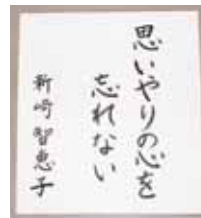 思いやりの心を
忘れない
新崎智恵子